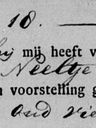 18.
mij heeft v
Neeltje
n voorstelling g
Oud vie